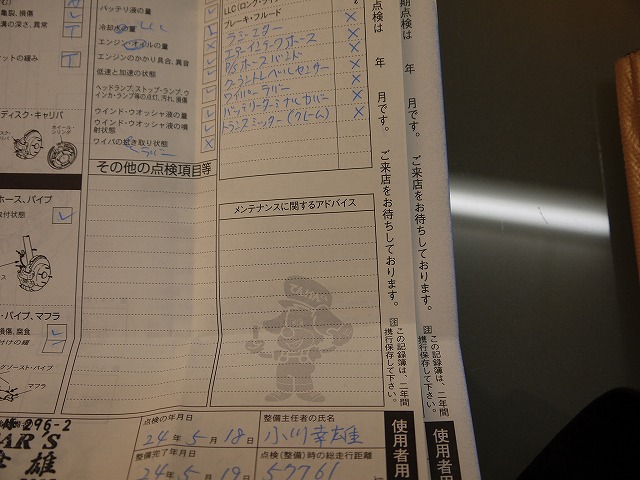 亀裂、損傷
溝の深さ、異常
ケットの緩み
ディスク・キャリパ
ホース、パイプ
取付状態
・パイプ、マフラ
損傷、腐食
付けの緩
グゾースト・パイプ
マフラ
バッテリ液の量
冷却水の量 LLC
エンジン・オイルの量
エンジンのかかり具合、異音
低速と加速の状態
ヘッドランプ、ストップ・ランプ、ウ
インカ・ランプ等の点灯、汚れ、損傷
ウインド・ウオッシャ液の量
ウインド・ウオッシャ液の噴
射状態
ワイパの拭き取り状態
その他の点検項目等
LLC(ロング・ライ
ブレーキ・フルード ×
ラジエター ×
エアーインテークホース ×
P/Sホースバンド ×
クーラントレベルセンサー ×
ワイパーラバー ×
バッテリーターミナルカバー ×
トランスミッター(クレーム) ×
メンテナンスに関するアドバイス
てんけんくん
点検は 年 月です。 ご来店をお待ちしております。
期点検は 年 月です。 ご来店をお待ちしております。
この記録簿は、二年間
携行保存して下さい。
この記録簿は、二年間
携行保存して下さい。
使用者用
使用者用
296-2
AR'S
雄
点検の年月日
24年 5月 18日
整備完了年月日
24年 5月 19日
整備主任者の氏名
小川幸雄
点検(整備)時の総走行距離
57761